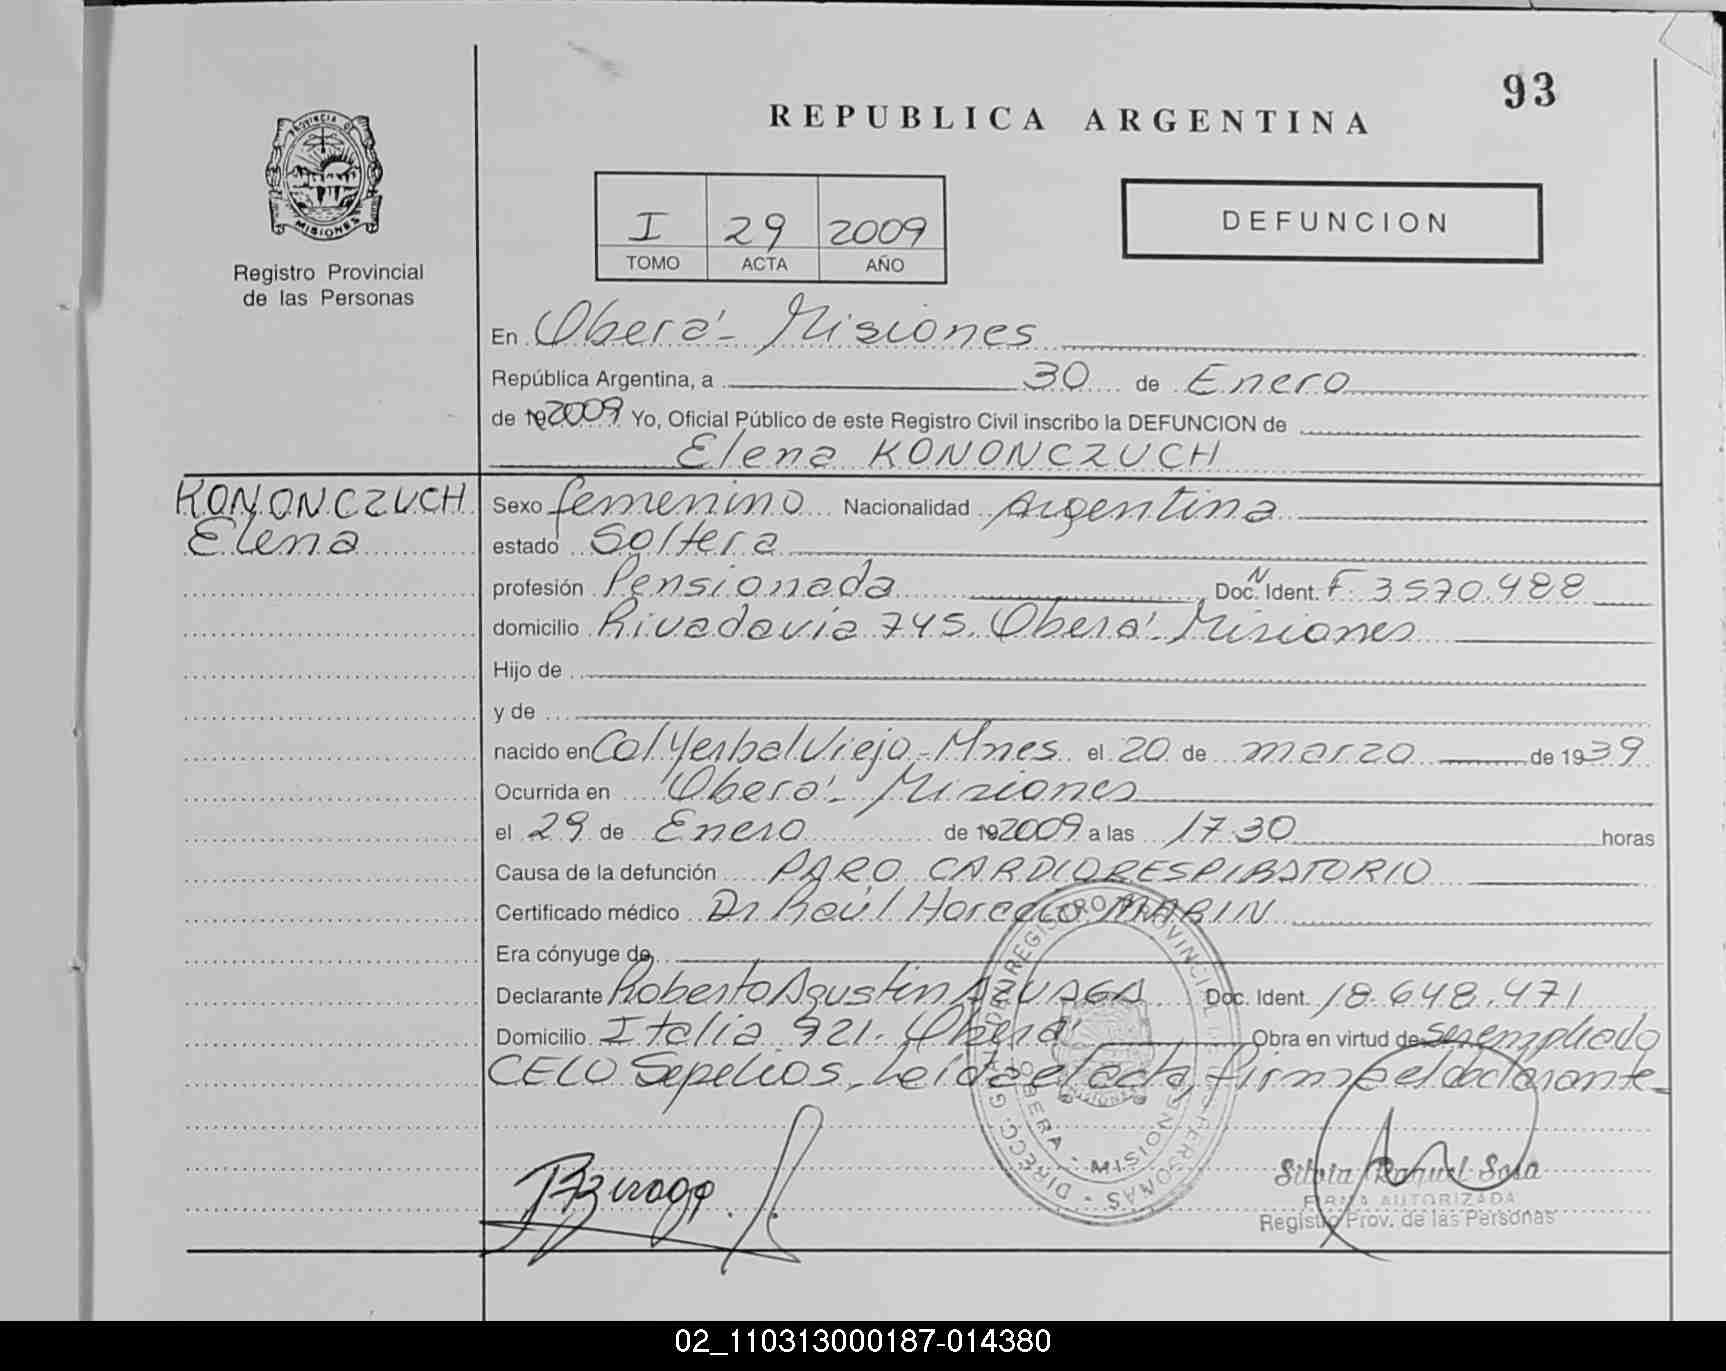 93
REPUBLICA ARGENTINA
PROVINCIA DE
MISIONES
Registro Provincial
de las Personas
I 29 2009
TOMO ACTA AÑO
DEFUNCION
En Oberá - Misiones
República Argentina, a 30 de Enero
de 192009 Yo, Oficial Público de este Registro Civil inscribo la DEFUNCION de
Elena KONONCZUCH
KONONCZUCH
Elena
Sexo femenino Nacionalidad Argentina
estado Soltera
profesión Pensionada Doc. N Ident. F. 3.570.488
domicilio Rivadavia 745. Oberá - Misiones
Hijo de
y de
nacido en Col Yerbal Viejo - Mnes. el 20 de marzo de 1939
Ocurrida en Oberá - Misiones
el 29 de Enero de 192009 a las 17.30 horas
Causa de la defunción PARO CARDIORESPIRATORIO
Certificado médico Dr Raúl Horacio MARIN
Era cónyuge de
Declarante Roberto Agustín AZUAGA Doc. Ident. 18.648.471
Domicilio Italia 921. Oberá Obra en virtud de ser empleado
CELO Sepelios, Leída el acta, firma el declarante
RAzuaga
DIRECC. GRAL. DE REGISTRO PROVINCIAL DE LAS PERSONAS
OBERA - MISIONES
Silvia Raquel Sosa
FIRMA AUTORIZADA
Registro Prov. de las Personas
02_110313000187-014380